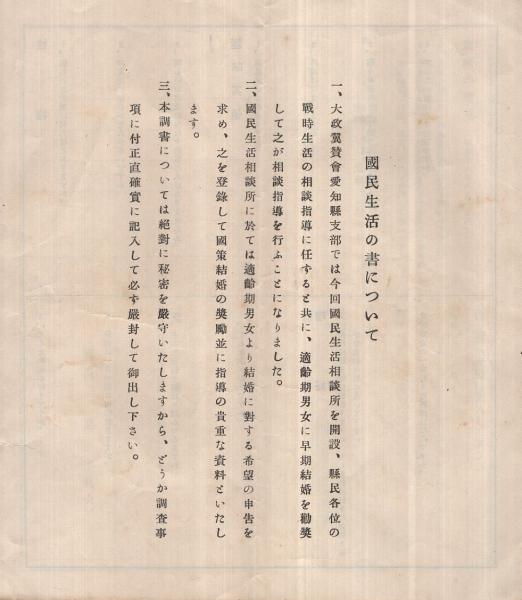 國民生活の書について
一、大政翼賛會愛知縣支部では今回國民生活相談所を開設、縣民各位の
戰時生活の相談指導に任ずると共に、適齡期男女に早期結婚を勸奬
して之が相談指導を行ふことになりました。
二、國民生活相談所に於ては適齡期男女より結婚に對する希望の申告を
求め、之を登錄して國策結婚の奬勵並に指導の貴重な資料といたし
ます。
三、本調書については絕對に秘密を嚴守いたしますから、どうか調査事
項に付正直確實に記入して必ず嚴封して御出し下さい。